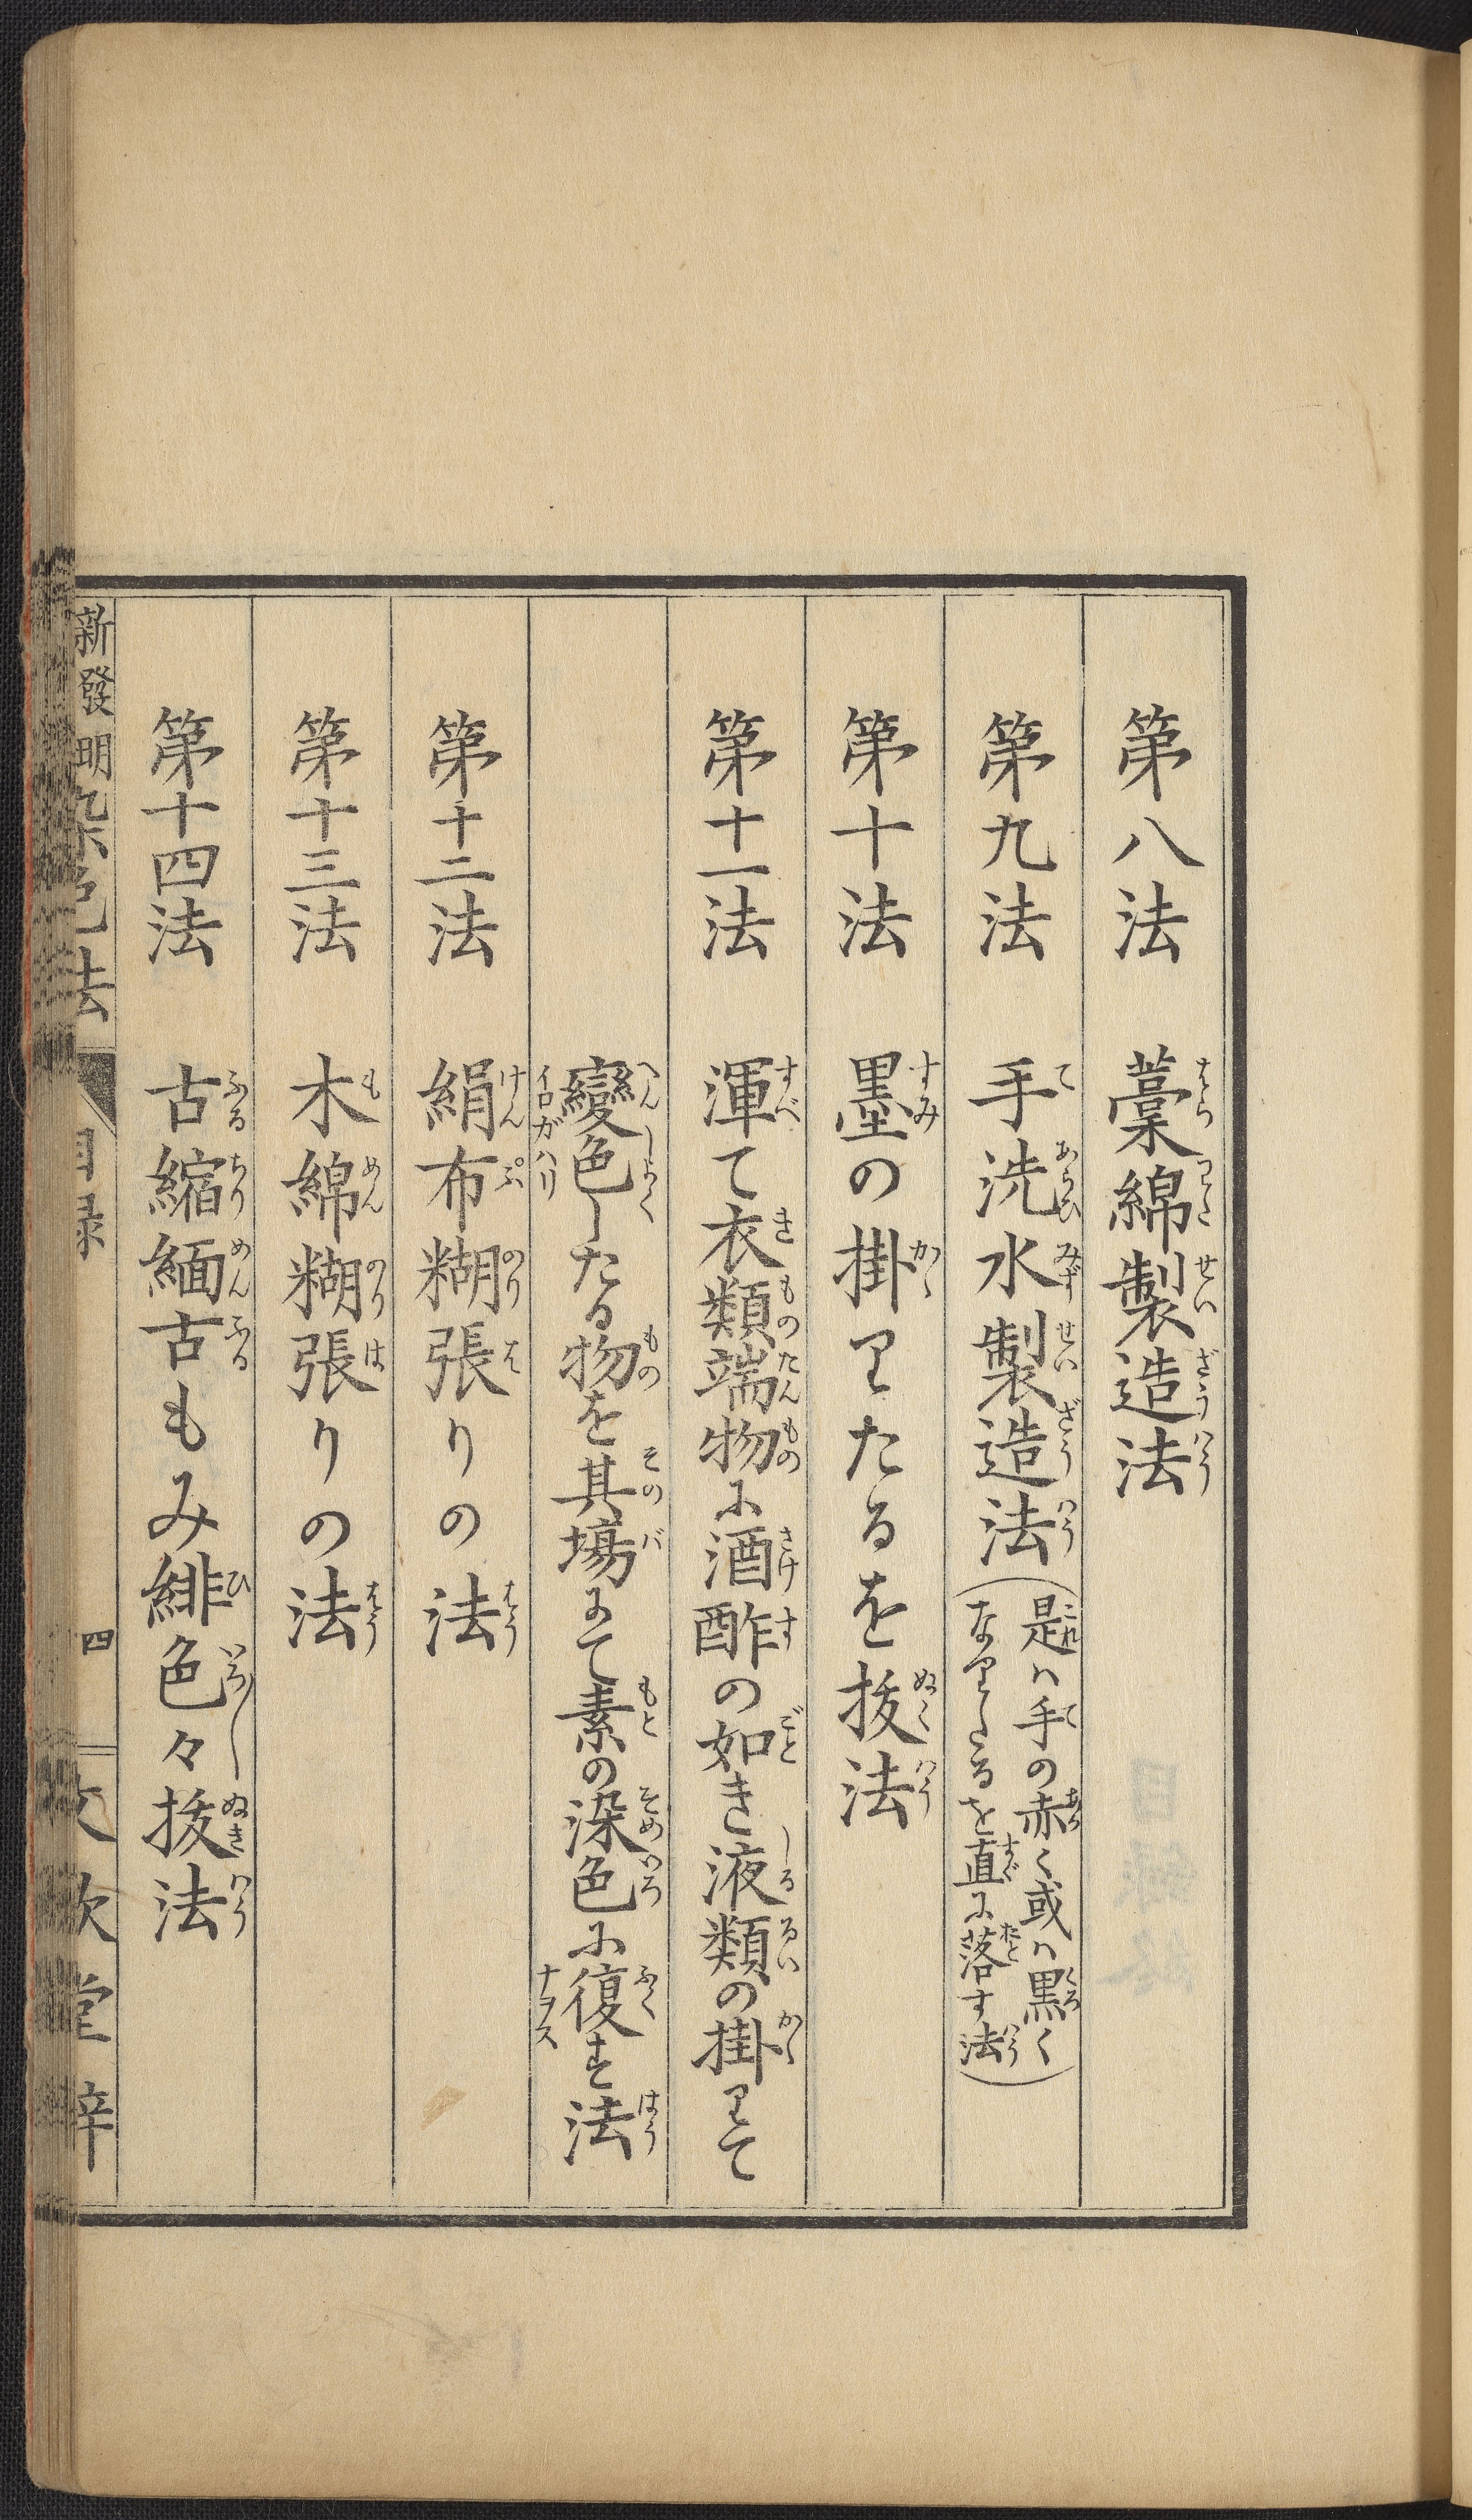 第八法　藁綿製造法
第九法　手洗水製造法（是ハ手の赤く或ハ黒く
なりたるを直に落す法）
第十法　墨の掛りたるを抜法
第十一法　渾て衣類端物に酒酢の如き液類の掛りて
變色したる物を其塲にて素の染色に復す法
第十二法　絹布糊張りの法
第十三法　木綿糊張りの法
第十四法　古縮緬古もみ緋色々抜法
新發明染色法　目録　四